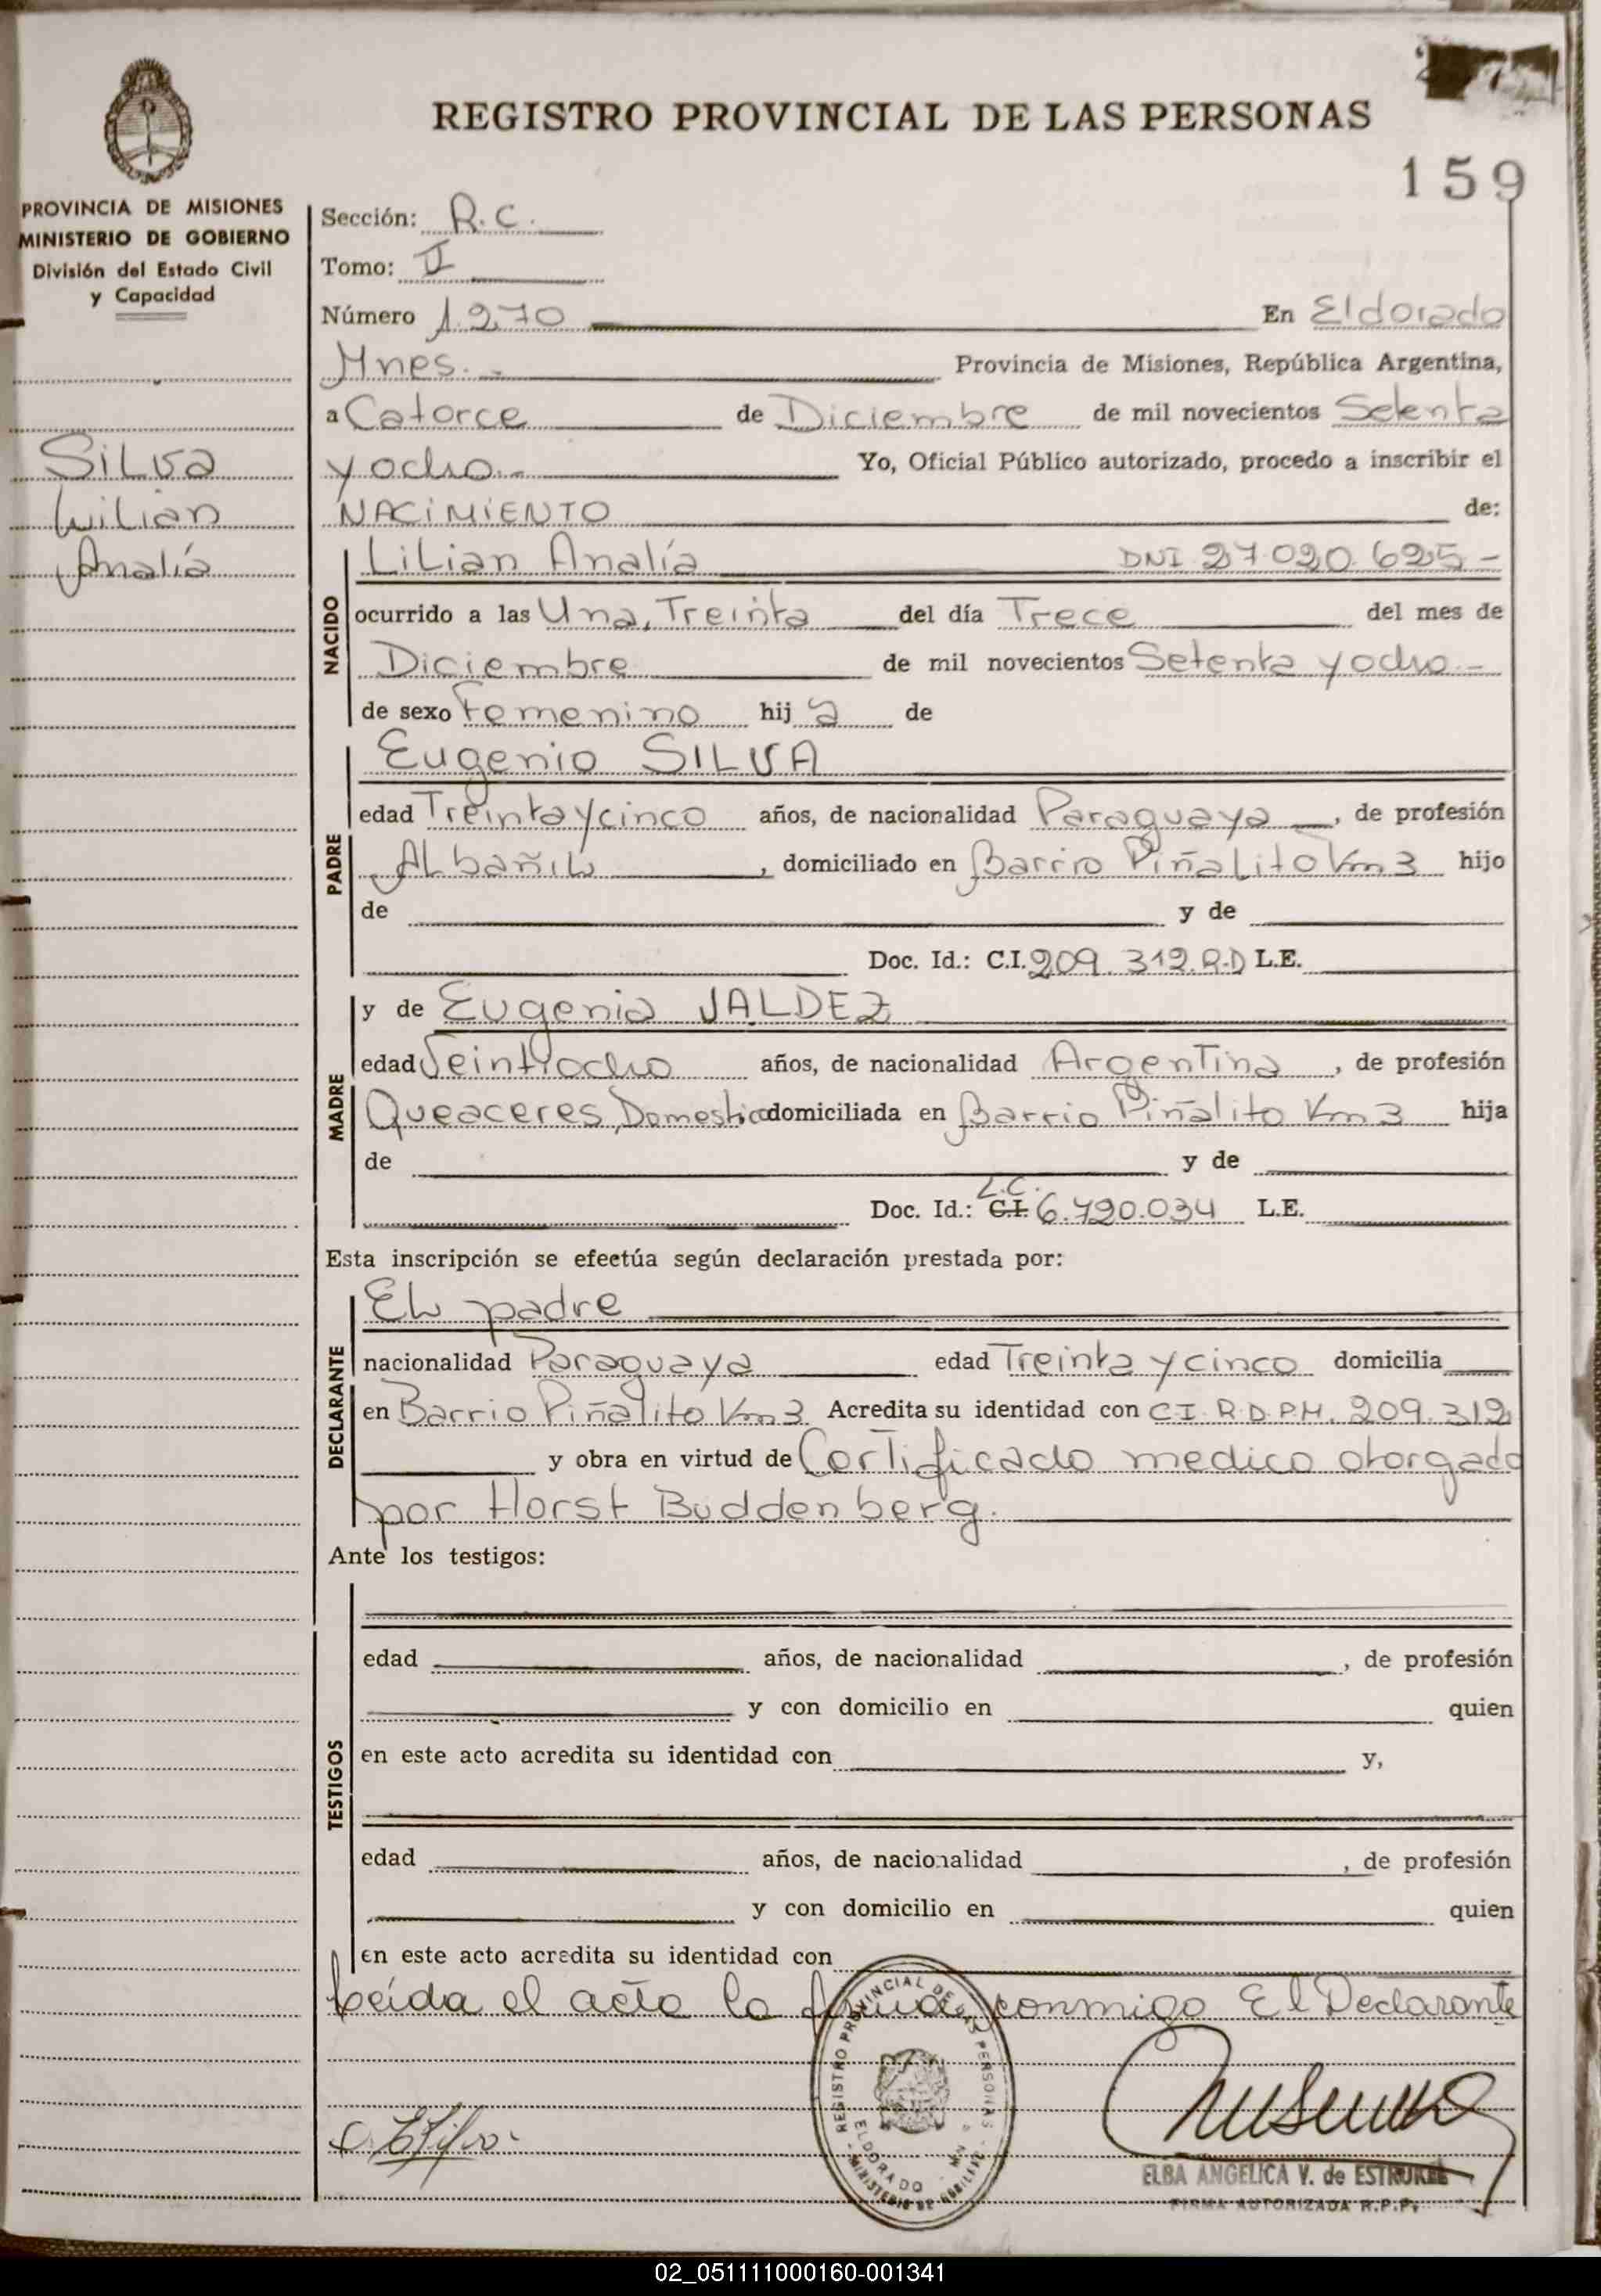 REGISTRO PROVINCIAL DE LAS PERSONAS
159
PROVINCIA DE MISIONES
MINISTERIO DE GOBIERNO
División del Estado Civil
y Capacidad
Silva
Lilian
Analía
Sección: R.C.
Tomo: II
Número 1.270 En Eldorado
Mnes.- Provincia de Misiones, República Argentina,
a Catorce de Diciembre de mil novecientos Setenta
y ocho.- Yo, Oficial Público autorizado, procedo a inscribir el
NACIMIENTO de:
NACIDO
Lilian Analía DNI 27.020.625-
ocurrido a las Una, Treinta del día Trece del mes de
Diciembre de mil novecientos Setenta y ocho.-
de sexo Femenino hij a de
PADRE
Eugenio SILVA
edad Treinta y cinco años, de nacionalidad Paraguaya, de profesión
Albañil, domiciliado en Barrio Piñalito Km 3 hijo
de y de
Doc. Id.: C.I. 209.312.R.D L.E.
MADRE
y de Eugenia VALDEZ
edad Veintiocho años, de nacionalidad Argentina, de profesión
Queaceres Domestico domiciliada en Barrio Piñalito Km 3 hija
de y de
Doc. Id.: C.I. L.C. 6.490.034 L.E.
Esta inscripción se efectúa según declaración prestada por:
DECLARANTE
El padre
nacionalidad Paraguaya edad Treinta y cinco domicilia
en Barrio Piñalito Km 3 Acredita su identidad con C.I. R.D.P.M. 209.312
y obra en virtud de Certificado medico otorgado
por Horst Buddenberg.
Ante los testigos:
TESTIGOS
edad años, de nacionalidad , de profesión
y con domicilio en quien
en este acto acredita su identidad con y,
edad años, de nacionalidad , de profesión
y con domicilio en quien
en este acto acredita su identidad con
Leída el acta la firma conmigo El Declarante
REGISTRO PROVINCIAL DE LAS PERSONAS
ELDORADO
ELBA ANGELICA V. de ESTRUKEL
FIRMA AUTORIZADA R.P.P.
02_051111000160-001341